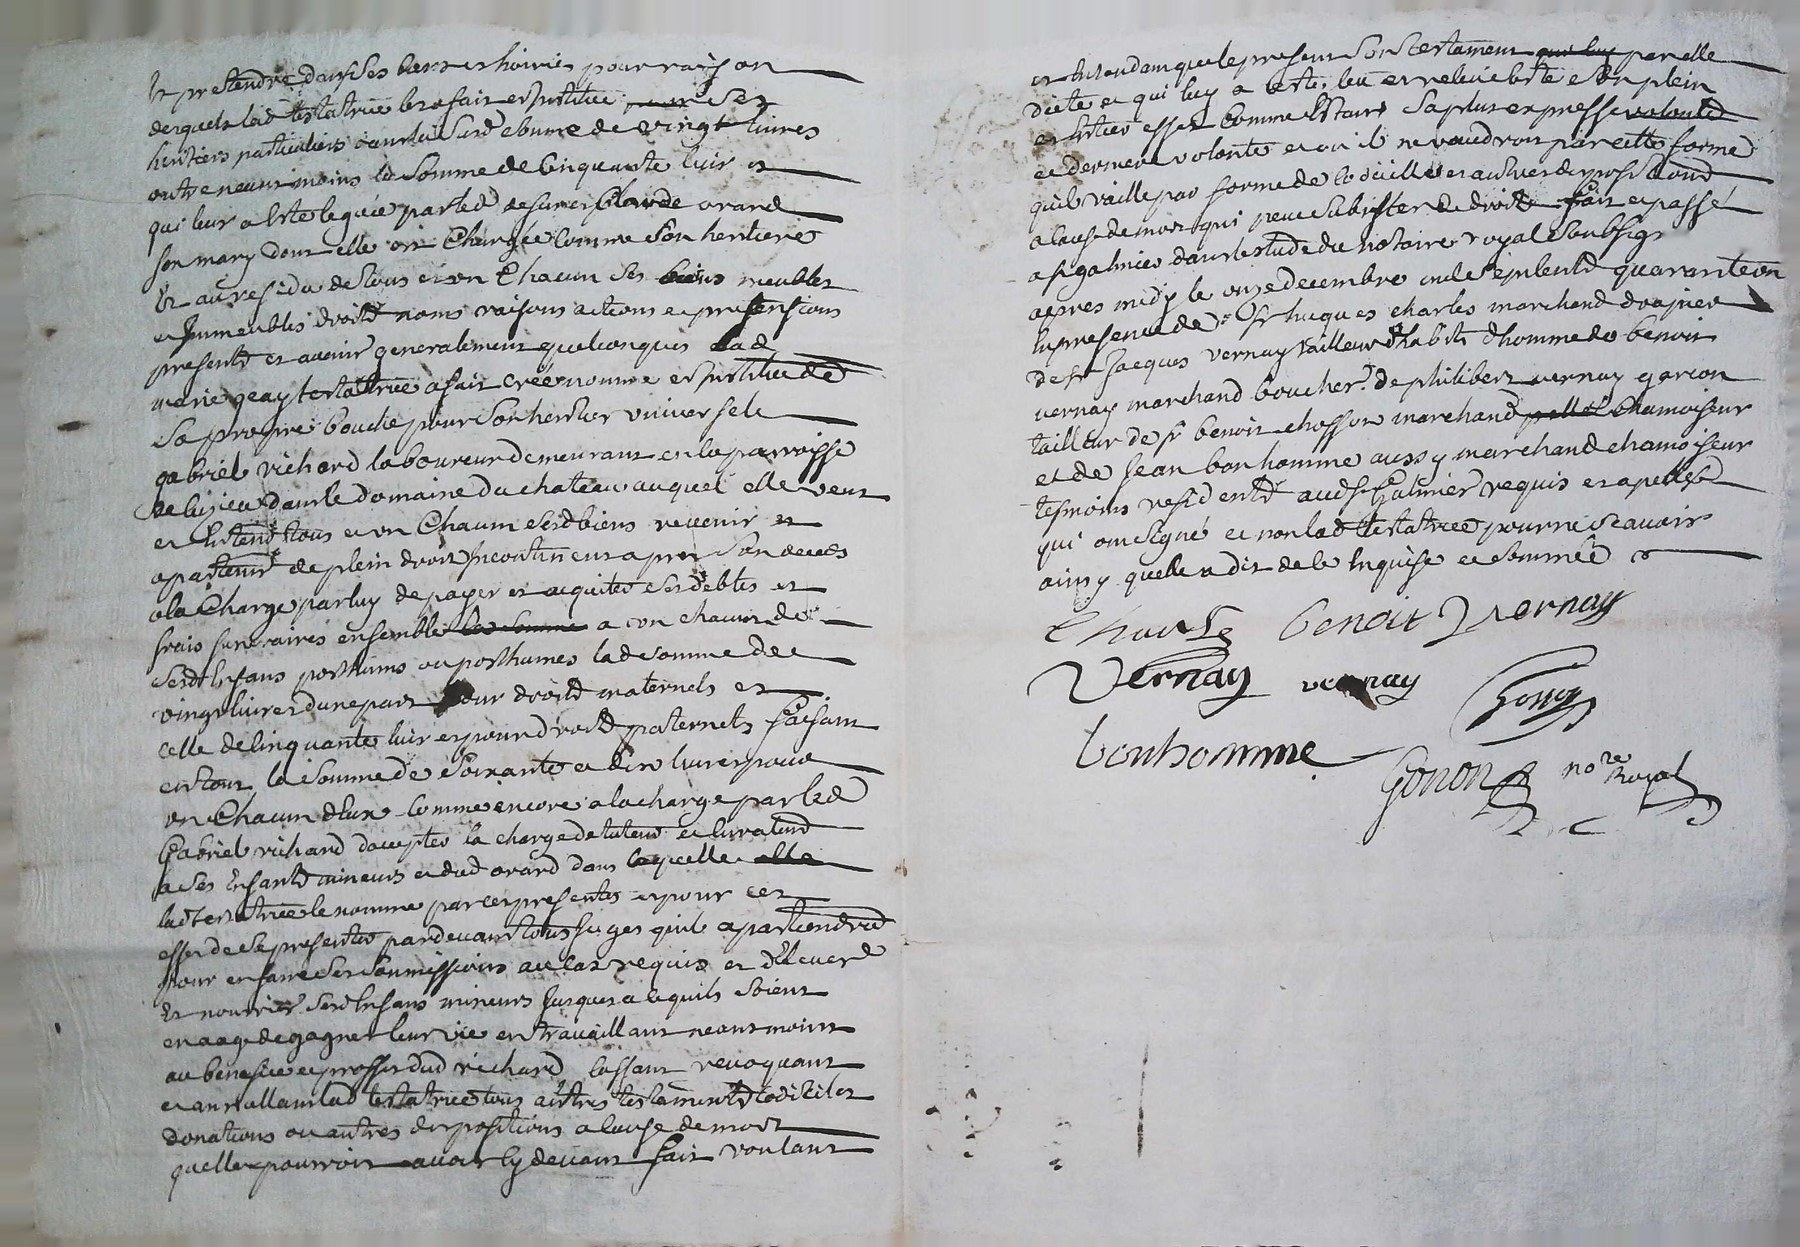 et pretendre dans ses biens et hoiries pour raison
desquels lad testatrice les a fait et institue ses
heritiers particuliers outre lad somme de vingt livres
outre neantmoins la somme de cinquante livres
qui leur a esté leguée par led deffunct Claude orard
son mary dont elle est Chargée comme son heritiere
Et au residu de tous et un Chacun ses biens meubles
et immeubles droits noms raisons actions et pretensions
presents et avenir generalement quelconques lad
marie geay testatrice a fait créé nommé et institué de
sa propre bouche pour son heritier universel
gabriel richard laboureur demeurant en la parroisse
dans le domaine du chateau auquel elle veut
et Entend tous et un Chacun sesd biens revenir et
apartenir de plein droit incontinent apres son deceds
a la Charge par luy de payer et acquiter ses debtes et
frais funeraires ensemble la somme a un chacun de
sesd Enfans posthumes ou posthumes lad somme de
vingt livres dune part pour droits maternels et
celle de Cinquante livres pour droits paternels faisant
en tout la somme de soixante et dix livres pour
un Chacun d'Eux comme encore a la charge par led
Gabriel richard d'accepter la charge de tuteur et Curateur
a ses Enfants mineurs et dud orard dans laquelle elle
lad testatrice le nomme par ces presentes et pour cet
effet de se presenter pardevant tous juges qu'il apartiendra
pour en faire ses soumissions au cas requis et d'Elever
Et nourrir sesd Enfans mineurs jusques a ce quils soient
en aage de gagner leur vie en travaillant neantmoins
au benefice et proffit dud richard cassant revoquant
et annullant lad testatrice tous autres testaments codiciles
donations ou autres dispositions a cause de mort
quelle pourroit avoir cy devant fait voulant
et Entendant que le present son testament que luy par elle
dicté et qui luy a esté leu et releu aye son plein
et Entier effet comme Estant sa plus expresse volonté
et derniere volonté et ou il ne vaudroit par cette forme
quil vaille par forme de codicille et autres dispositions
a cause de mort qui peut subsister de droit fait et passé
a st galmier dans l'estude du notaire royal soubsigné
apres midy le onze decembre mil sept cents quarante un
En presence de sr hugues charles marchand drapier
de sr jacques vernay tailleur d'habits d'homme de benoit
vernay marchand boucher de philibert vernay garcon
tailleur de sr benoit chosson marchand chamoiseur
et de jean bonhomme aussy marchand chamoiseur
tesmoins residents aud st Galmier requis et apellés
qui ont signé et non lad testatrice pour ne scavoir
ainsy quelle a dit de ce Enquise et sommée
Charles benoit Vernay
Vernay vernay
bonhomme
Gonon nore Royal